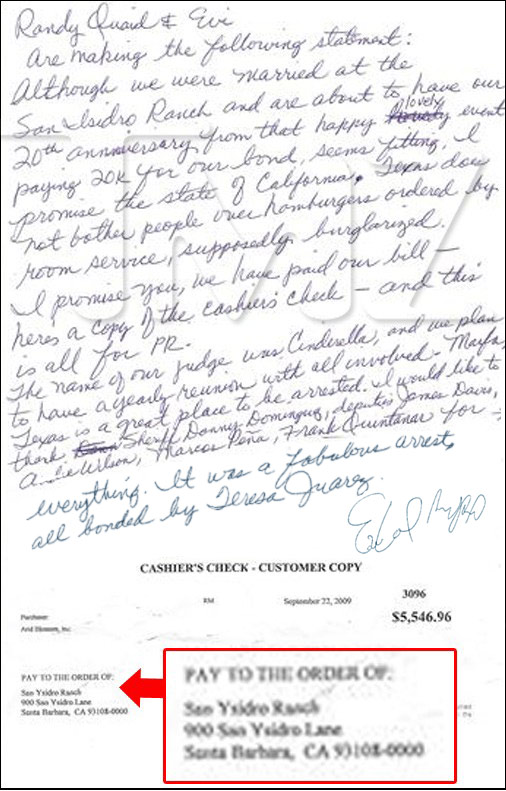 Randy Quaid & Evi
Are making the following statement:
Although we were married at the
San Isidro Ranch and are about to have our
20th annniversary from that happy lovely event
paying 20K for our bond, seems fitting, I
promise the state of California. Texas does
not bother people over hamburgers ordered by
room service, supposedly burglarized.
I promise you, we have paid our bill —
here's a copy of the cashier's check — and this
is all for PR.
The name of our judge was Cinderella, and we plan
to have a yearly reunion with all involved - Marfa,
Texas is a great place to be arrested. I would like to
thank Sheriff Donny Dominguez, deputies James Davis,
Wilson, Marcos Peña, Frank Quintanar for
everything. It was a fabulous arrest,
all bonded by Teresa Juarez.
CASHIER'S CHECK - CUSTOMER COPY
RM September 22, 2009 3096
$5,546.96
Purchaser:
And Blossom, Inc
PAY TO THE ORDER OF:
San Ysidro Ranch
900 San Ysidro Lane
Santa Barbara, CA 93108-0000
PAY TO THE ORDER OF:
San Ysidro Ranch
900 San Ysidro Lane
Santa Barbara, CA 93108-0000
TMZ